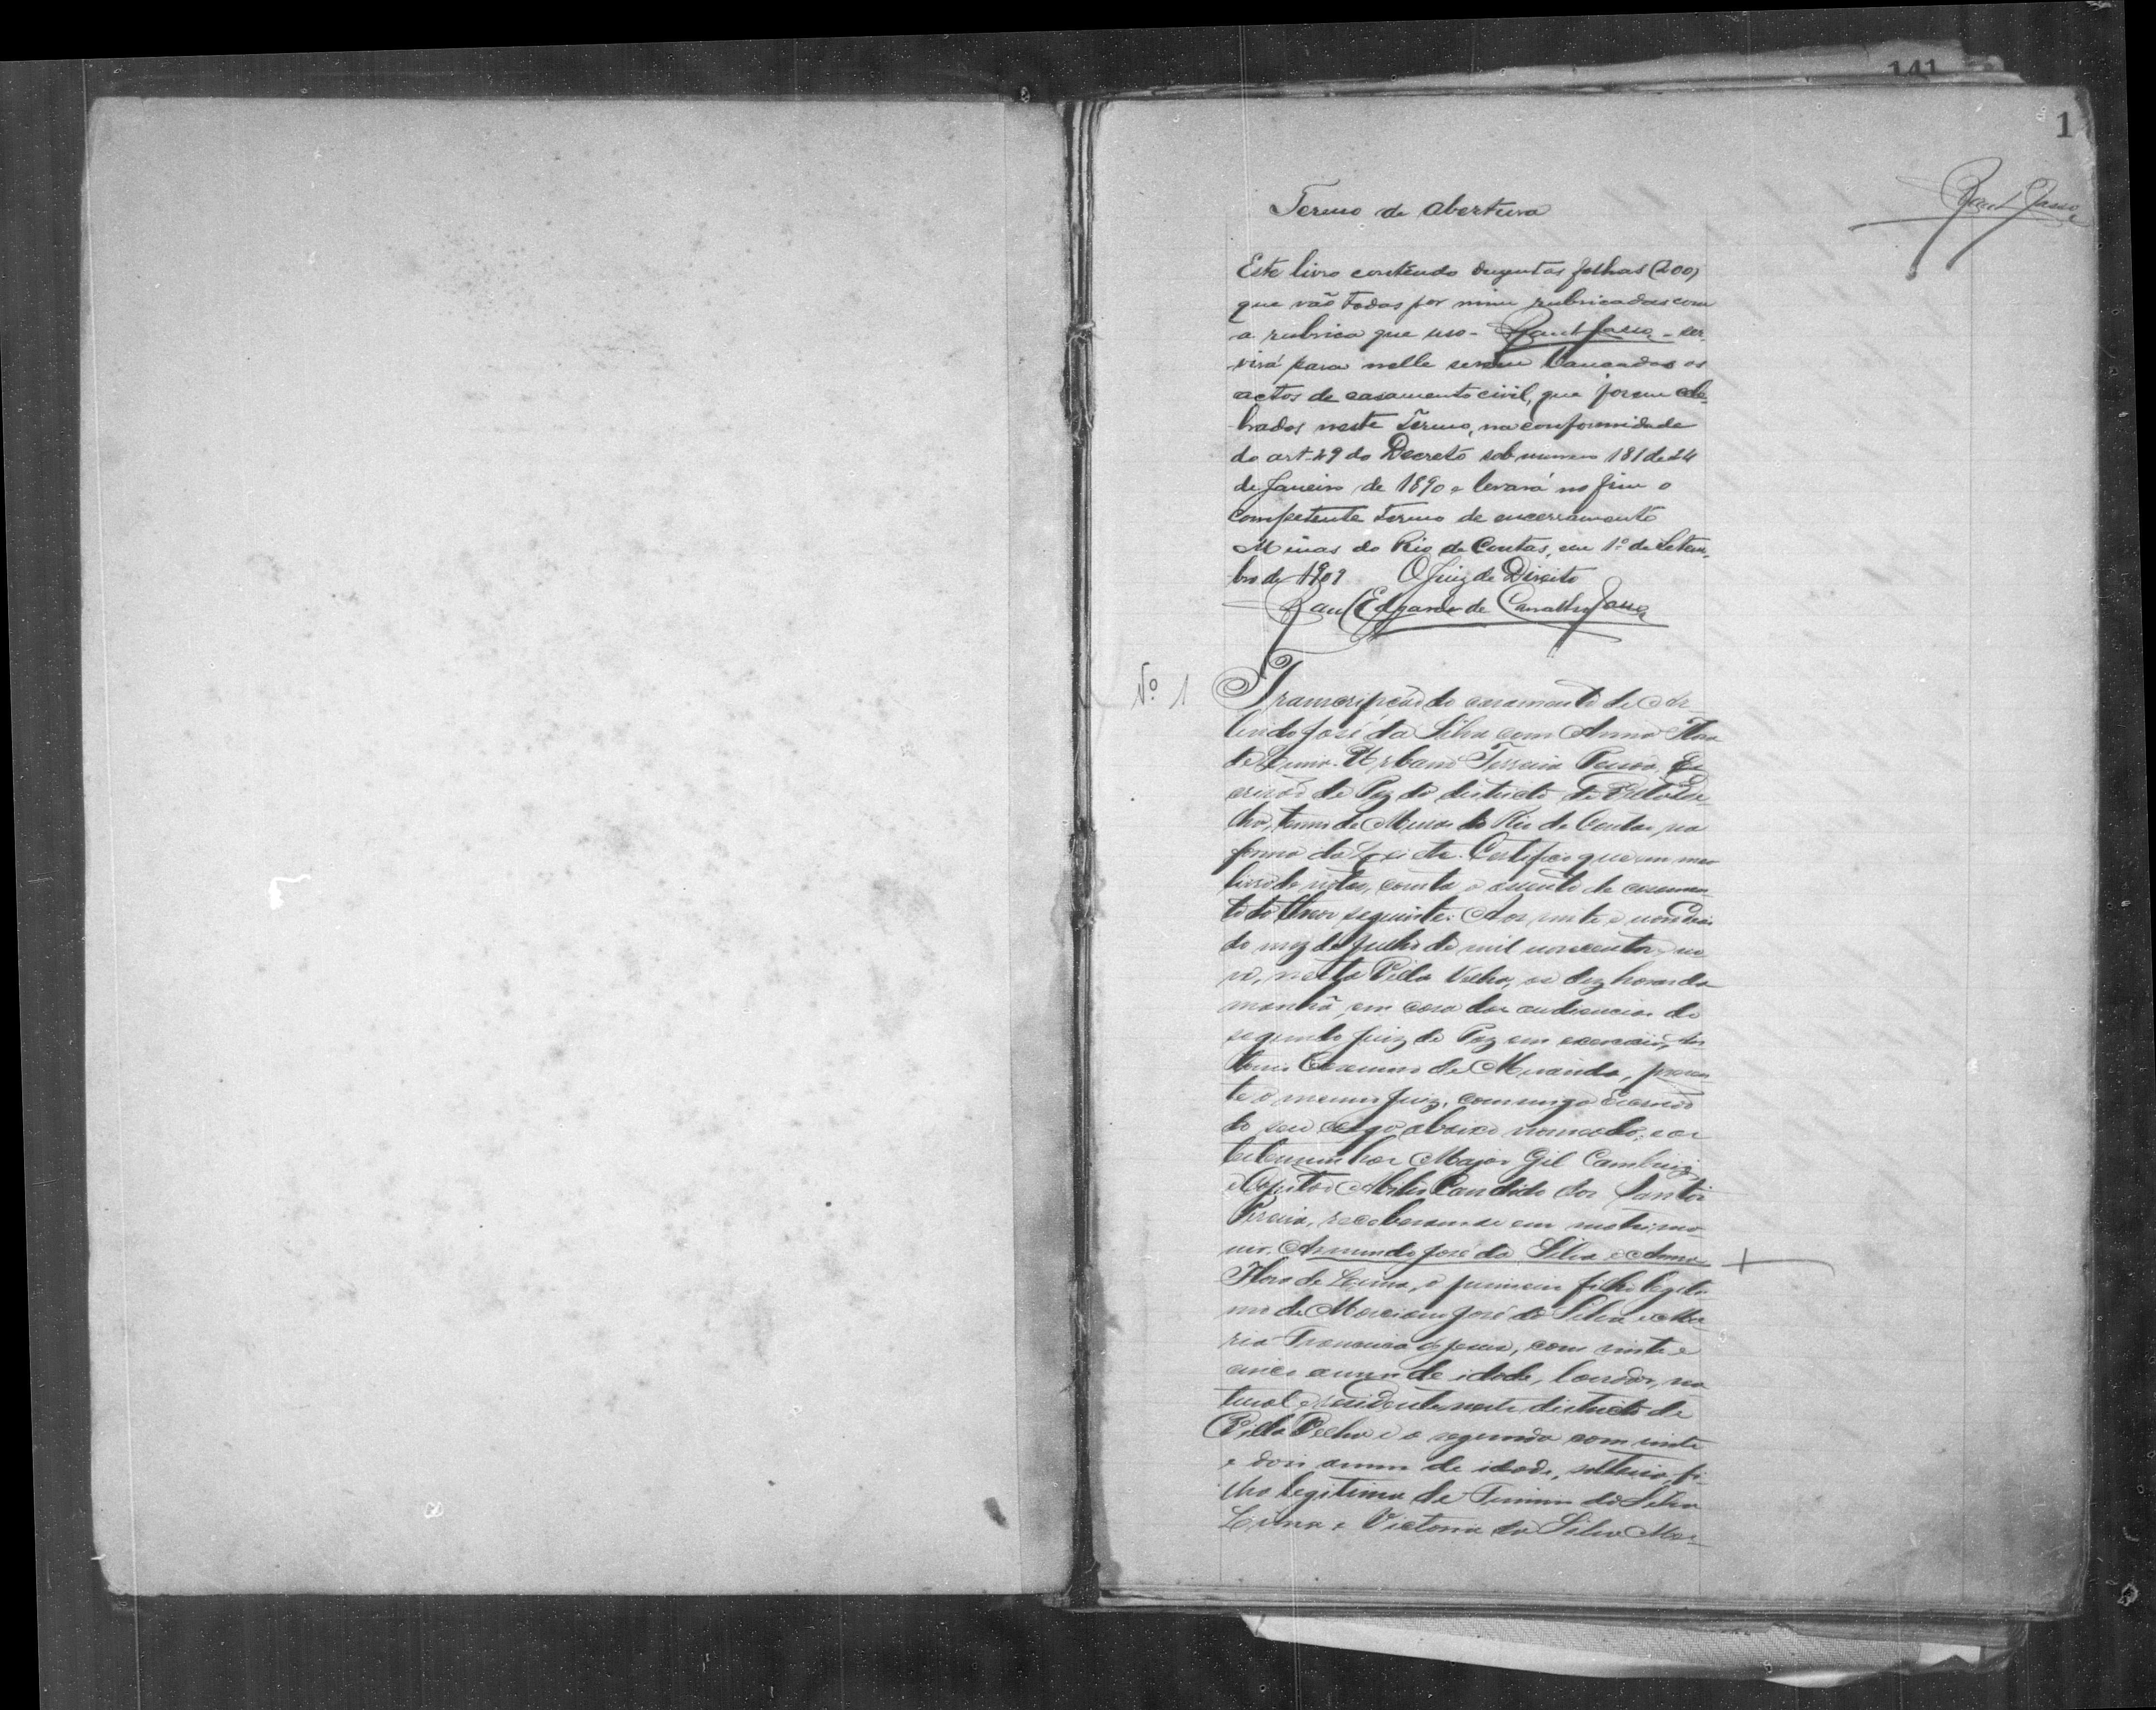 141
1
Termo de Abertura
Este livro contendo duzentas folhas (200)
que vão todas por mim rubricadas com
a rubrica que uso - - ser
virá para nelle serem lançados os
actos de casamento civil, que forem cele
brados neste Termo, na conformidade
do art. 49 do Decreto sob numero 181 de 24
de Janeiro de 1890 e levará no fim o
competente termo de encerramento
Minas do Rio de Contas, em 1º de Setem
bro de 1909 O Juiz de Direito
Edgardo de Carvalho
Nº 1
Transcripção do casamento de Ar
lindo José da Silva com Anna Flora
de Lima. Urbano Pessoa, Es
crivão de Paz do districto de Villa Ve
lha, termo de Minas do Rio de Contas, na
forma da Lei etc. Certifico que em meu
livro de notas, consta o assento de casamen
to do theor seguinte: Aos vinte e nove dias
do mez de Julho de mil novecentos e no
ve, nesta Villa Velha, as dez horas da
manhã, em casa das audiencias do
segundo Juiz de Paz em exercicio, An
tonio de Miranda, presen
te o mesmo Juiz, commigo Escrivão
do seu cargo abaixo nomeado, e as
testemunhas Major Gil
e Capitão Candido dos Santos
Pereira, receberam-se em matrimo
nio. José da Silva e Anna
Flora de Lima, o primeiro filho legiti
mo de Marciano José da Silva e Ma
ria Francisca de Jesus, com vinte e
cinco annos de idade, lavrador, na
tural e residente neste districto de
Villa Velha e a segunda com vinte
e dois annos de idade, solteira, fi
lha legitima de Firmino da Silva
Lima e Victoria da Silva